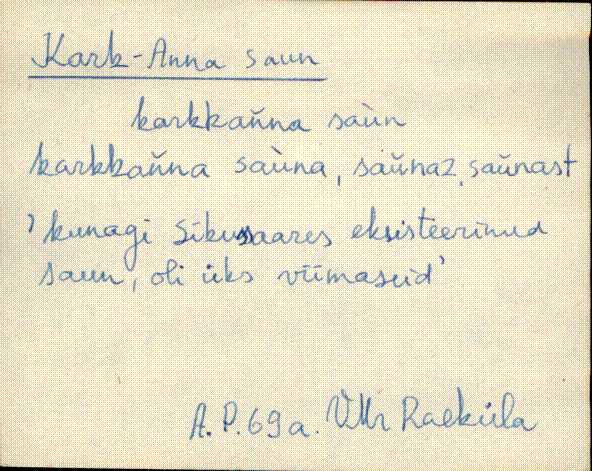 Kark-Anna saun
karkkan̆na saùn
karkkan̆na saùna, saŭnaz, saŭnast
'kunagi Sikusaares eksisteerinud
saun, oli üks viimaseid'
A.P.69a. VMr Raeküla